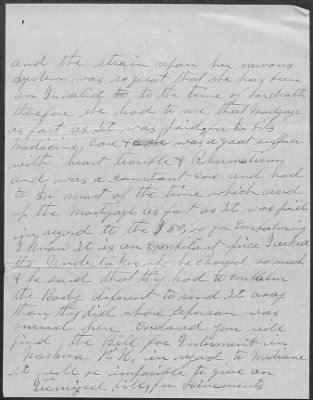 and the strain upon her nervous
system was so great that she has been
an Invalid to to the time of her death
therefore she had to use that Mortgage
as fast as It was paid, for In bls
Medicine, Care & she was a great sufferer
with heart trouble & Rhumatism
and was a constant care and had
to Dr most of the time which used
up the Mortgage as fast as It was paid
in regard to the for Embalming
I know It is an Exorbitant price I asked
the Undertaker why he charged so much
& he said that they had to Embalm
the Body diferent to send It away
than they did when a person was
buried here, Enclosed you will
find the Bill for Interment in
Nashua N.H., in regard to Medicine
it will be imposible to give an
Itemized bill, for